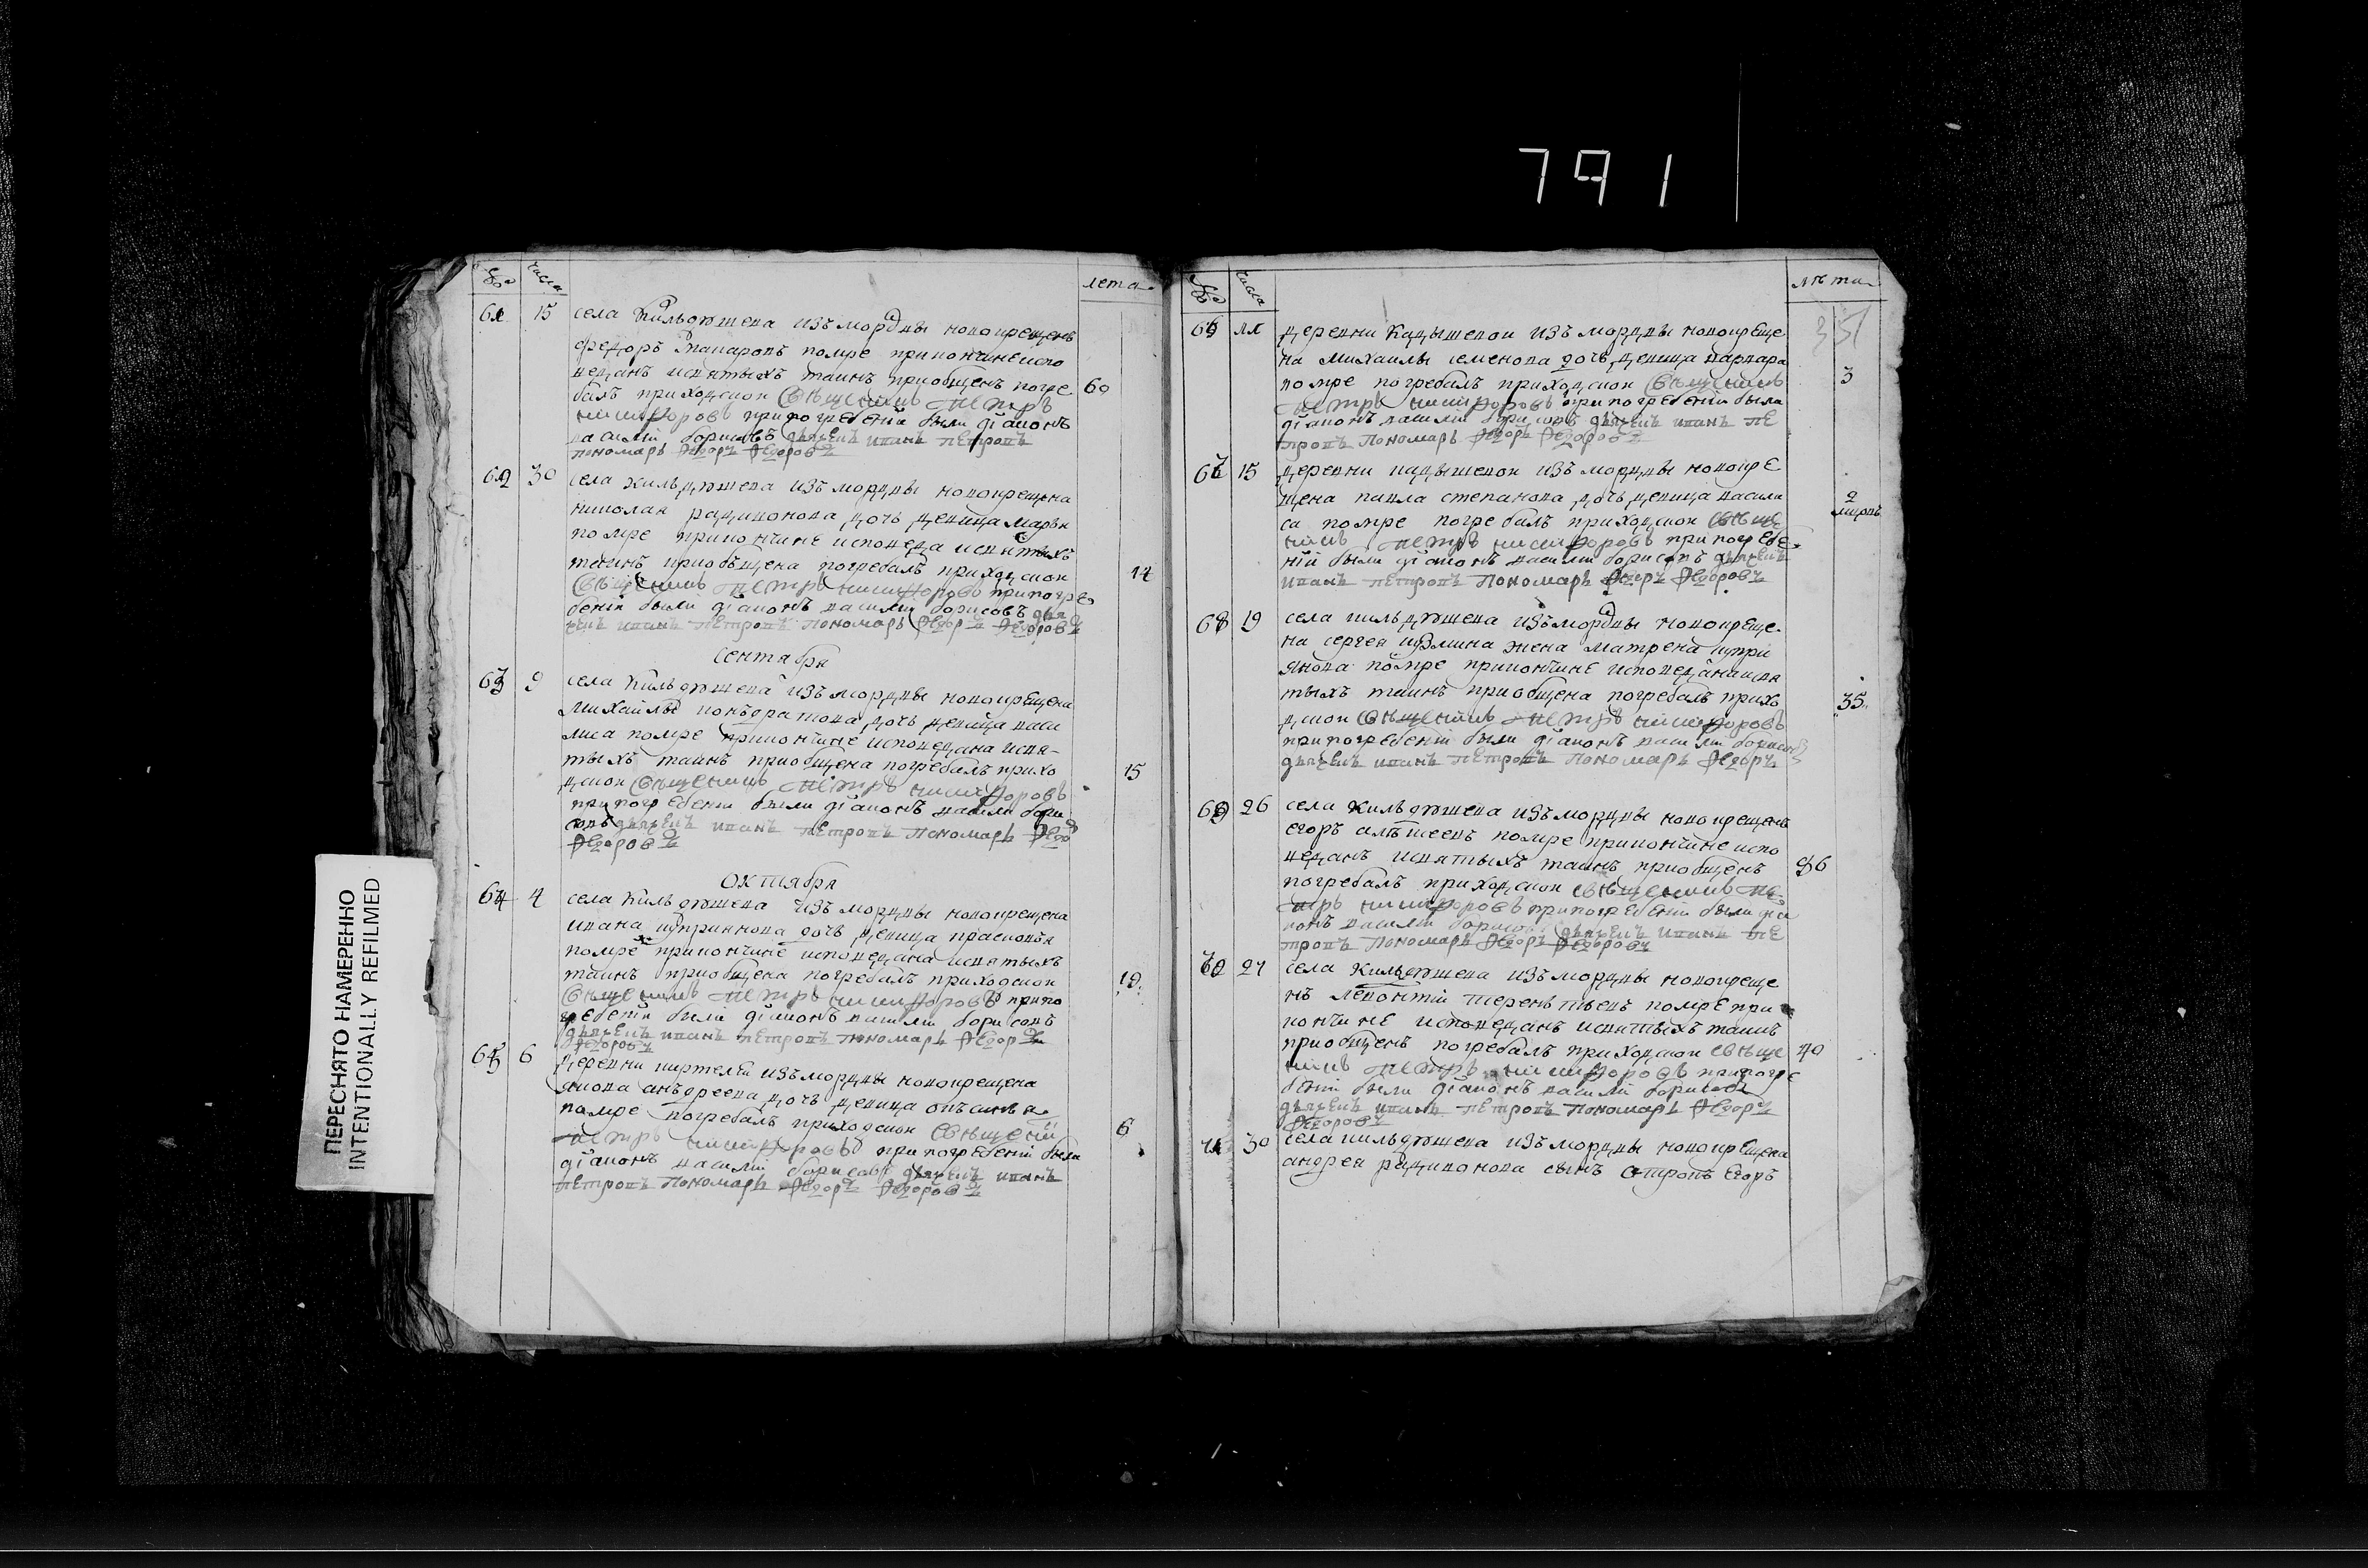 791
ПЕРЕСНЯТО НАМЕРЕННО
INTENTIONALLY REFILMED
числа
лета
61 15 села Кильдюшева изъ мордвы новокрещенъ
федоръ макаровъ помре прикончине испо
веданъ исвятыхъ таинъ приобщенъ погре 60
балъ приходскои Священникъ Петръ
никифоровъ припогребении были дiаконъ
василiи борисовъ дьячекъ иванъ петровъ
пономарь Федоръ Федоровъ
62 30 села кильдюшева изъ мордвы новокрещена
николая радионова дочь девица марья
помре прикончине исповеда исвятыхъ
таинъ приобщена погребалъ приходскои 14
Священникъ Петръ никифоровъ припогре
бенiи были дiаконъ василiи борисовъ дья
чекъ иванъ петровъ пономарь Федоръ Федоровъ
сентября
63 9 села Кильдюшева изъ мордвы новокрещена
михаилы кондратова дочь девица васи
лиса помре прикончине исповедана исвя-
тыхъ таинъ приобщена погребалъ прихо 15
дскои Священникъ Петръ никифоровъ
припогребенiи были дiаконъ василiи бори
совъ дьячекъ иванъ петровъ пономарь Федо
Федоровъ
октября
64 4 села Кильдюшева изъ мордвы новокрещена
ивана куприянова дочь девица прасковья
помре прикончине исповедана исвятыхъ
таинъ приобщена погребалъ приходскои 19
Священникъ Петръ никифоровъ припо
гребенiи были дiаконъ василiи борисовъ
дьячекъ иванъ петровъ пономарь Федоръ
Федоровъ
65 6 деревни киртели изъ мордвы новокрещена
якова андреева дочь девица
помре погребалъ приходскои Священникъ 6
Петръ никифоровъ припогребенiи были
дiаконъ василiи борисовъ дьячекъ иванъ
петровъ пономарь Федоръ Федоровъ
числа
лѣта
66 деревни Кадышевои изъ мордвы новокреще
на михаилы семенова дочь девица варвара
помре погребалъ приходскои Священникъ 3
Петръ никифоровъ припогребенiи были
дiаконъ василiи борисовъ дьячекъ иванъ пе
тровъ пономарь Федоръ Федоровъ
67 15 деревни кадышевои изъ мордвы новокре
щена павла степанова дочь девица васили 2
са помре погребалъ приходскои Священ
никъ Петръ никифоровъ припогребе
нiи были дiаконъ василiи борисовъ дьячекъ
иванъ петровъ пономарь Федоръ Федоровъ
68 19 села кильдюшева изъ мордвы новокреще
на сергея жена матрена купри
янова помре прикончине исповедана исвя
тыхъ таинъ приобщена погребалъ прихо 35
дскои Священникъ Петръ никифоровъ
припогребенiи были дiаконъ василiи борисовъ
дьячекъ иванъ петровъ пономарь Федоръ
69 26 села Кильдюшева изъ мордвы новокрещенъ
егоръ алѣшеевъ помре прикончине испо
веданъ исвятыхъ таинъ приобщенъ
погребалъ приходскои священникъ Пе
тръ никифоровъ припогребенiи были дiа
конъ василiи борисовъ дьячекъ иванъ пе
тровъ пономарь Федоръ Федоровъ
70 27 села Кильдюшева изъ мордвы новокреще
нъ леонтiи терентьевъ помре при
кончине исповеданъ исвятыхъ таинъ
приобщенъ погребалъ приходскои свяще 40
никъ Петръ никифоровъ припогре
бенiи были дiаконъ василiи борисовъ
дьячекъ иванъ петровъ пономарь Федоръ
Федоровъ
71 30 села кильдюшева изъ мордвы новокрещена
андрея радионова сынъ отрокъ Егоръ